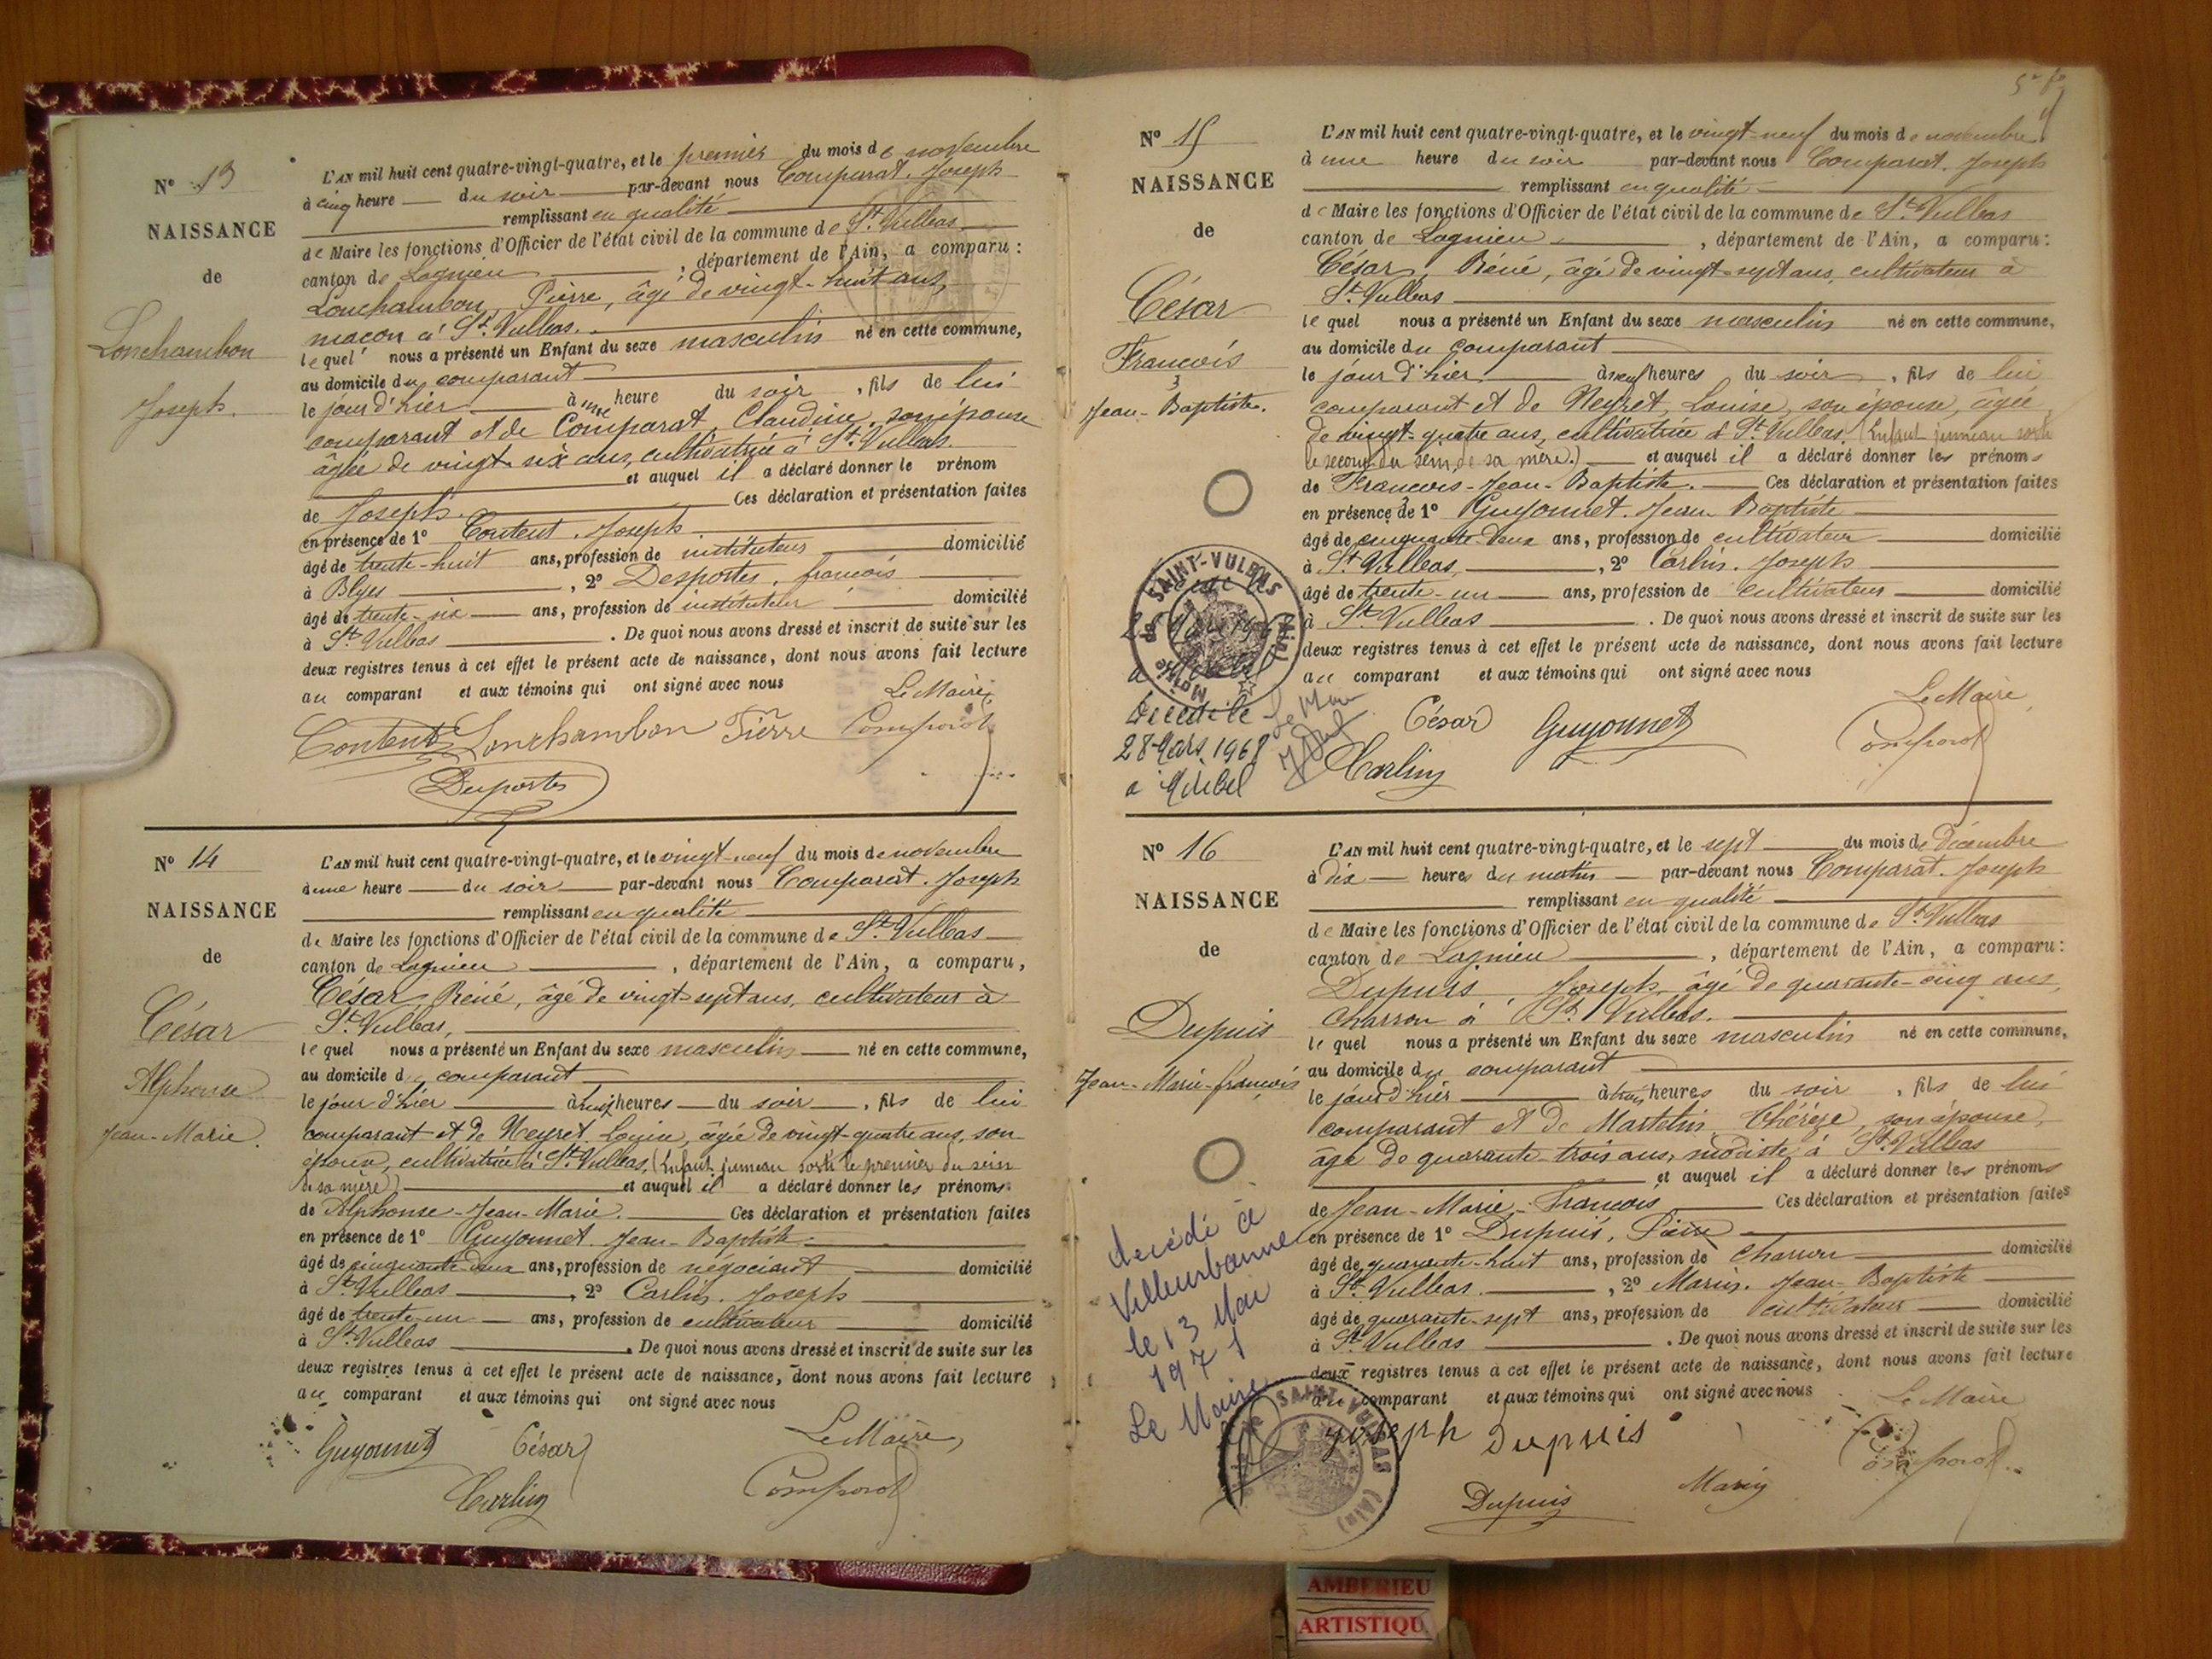 N° 13
NAISSANCE
de
Lonchambon
Joseph.
L'AN mil huit cent quatre-vingt-quatre, et le premier du mois de novembre
à cinq heure du soir par-devant nous Comparat. Joseph
remplissant en qualité
de Maire les fonctions d'Officier de l'état civil de la commune de St. Vulbas
canton de Lagnieu, département de l'Ain, a comparu :
Lonchambon, Pierre, âgé de vingt-huit ans,
maçon à St. Vulbas.
lequel nous a présenté un Enfant du sexe masculin né en cette commune,
au domicile du comparant
le jour d'hier à une heure du soir, fils de lui
comparant et de Comparat, Claudine, son épouse
âgée de vingt-six ans, cultivatrice à St. Vulbas.
et auquel il a déclaré donner le prénom
de Joseph. Ces déclaration et présentation faites
en présence de 1° Content. Joseph
âgé de trente-huit ans, profession de instituteur domicilié
à Blyes, 2° Desportes. françois
âgé de trente-six ans, profession de instituteur domicilié
à St. Vulbas. De quoi nous avons dressé et inscrit de suite sur les
deux registres tenus à cet effet le présent acte de naissance, dont nous avons fait lecture
au comparant et aux témoins qui ont signé avec nous
Le Maire,
Content Lonchambon Pierre Comparat
Desportes
N° 14
NAISSANCE
de
César
Alphonse
Jean-Marie.
L'AN mil huit cent quatre-vingt-quatre, et le vingt-neuf du mois de novembre
à une heure du soir par-devant nous Comparat. Joseph
remplissant en qualité
de Maire les fonctions d'Officier de l'état civil de la commune de St. Vulbas
canton de Lagnieu, département de l'Ain, a comparu,
César, Réné, âgé de vingt-sept ans, cultivateur à
St. Vulbas,
lequel nous a présenté un Enfant du sexe masculin né en cette commune,
au domicile du comparant
le jour d'hier à neuf heures du soir, fils de lui
comparant et de Neyret, Louise, âgée de vingt-quatre ans, son
épouse, cultivatrice à St. Vulbas, (Enfant jumeau sorti le premier du sein
de sa mère) et auquel il a déclaré donner les prénoms
de Alphonse-Jean-Marie. Ces déclaration et présentation faites
en présence de 1° Guyonnet. Jean-Baptiste
âgé de cinquante-deux ans, profession de négociant domicilié
à St. Vulbas, 2° Carlin. Joseph
âgé de trente-un ans, profession de cultivateur domicilié
à St. Vulbas. De quoi nous avons dressé et inscrit de suite sur les
deux registres tenus à cet effet le présent acte de naissance, dont nous avons fait lecture
au comparant et aux témoins qui ont signé avec nous
Le Maire,
Guyonnet César
Carlin Comparat
N° 15
NAISSANCE
de
César
François
Jean-Baptiste.
L'AN mil huit cent quatre-vingt-quatre, et le vingt-neuf du mois de novembre
à une heure du soir par-devant nous Comparat. Joseph
remplissant en qualité
de Maire les fonctions d'Officier de l'état civil de la commune de St. Vulbas
canton de Lagnieu, département de l'Ain, a comparu :
César, Réné, âgé de vingt-sept ans, cultivateur à
St. Vulbas
lequel nous a présenté un Enfant du sexe masculin né en cette commune,
au domicile du comparant
le jour d'hier à neuf heures du soir, fils de lui
comparant et de Neyret, Louise, son épouse, âgée
de vingt-quatre ans, cultivatrice à St. Vulbas. (Enfant jumeau sorti
le second du sein de sa mère.) et auquel il a déclaré donner les prénoms
de François-Jean-Baptiste. Ces déclaration et présentation faites
en présence de 1° Guyonnet. Jean-Baptiste
âgé de cinquante-deux ans, profession de cultivateur domicilié
à St. Vulbas, 2° Carlin. Joseph
âgé de trente-un ans, profession de cultivateur domicilié
à St. Vulbas. De quoi nous avons dressé et inscrit de suite sur les
deux registres tenus à cet effet le présent acte de naissance, dont nous avons fait lecture
au comparant et aux témoins qui ont signé avec nous
Le Maire,
César Guyonnet Comparat
Carlin
MAIRIE DE SAINT-VULBAS (Ain)
Décédé le
28 Mars 1968
à Miribel
Le Maire
N° 16
NAISSANCE
de
Dupuis
Jean-Marie-françois
L'AN mil huit cent quatre-vingt-quatre, et le sept du mois de Décembre
à dix heures du matin par-devant nous Comparat. Joseph
remplissant en qualité
de Maire les fonctions d'Officier de l'état civil de la commune de St. Vulbas
canton de Lagnieu, département de l'Ain, a comparu :
Dupuis, Joseph, âgé de quarante-cinq ans,
charron à St. Vulbas.
lequel nous a présenté un Enfant du sexe masculin né en cette commune,
au domicile du comparant
le jour d'hier à trois heures du soir, fils de lui
comparant et de Martelin Thérèze, son épouse,
âgé de quarante-trois ans, modiste à St. Vulbas
et auquel il a déclaré donner les prénoms
de Jean-Marie-François Ces déclaration et présentation faites
en présence de 1° Dupuis, Pierre
âgé de quarante-huit ans, profession de charron domicilié
à St. Vulbas., 2° Marin. Jean-Baptiste
âgé de quarante-sept ans, profession de cultivateur domicilié
à St. Vulbas. De quoi nous avons dressé et inscrit de suite sur les
deux registres tenus à cet effet le présent acte de naissance, dont nous avons fait lecture
au comparant et aux témoins qui ont signé avec nous
Le Maire
Joseph Dupuis Comparat
Dupuis Marin
décédé à
Villeurbanne
le 13 Mai
1971
Le Maire
SAINT-VULBAS (Ain)
AMBERIEU
ARTISTIQU